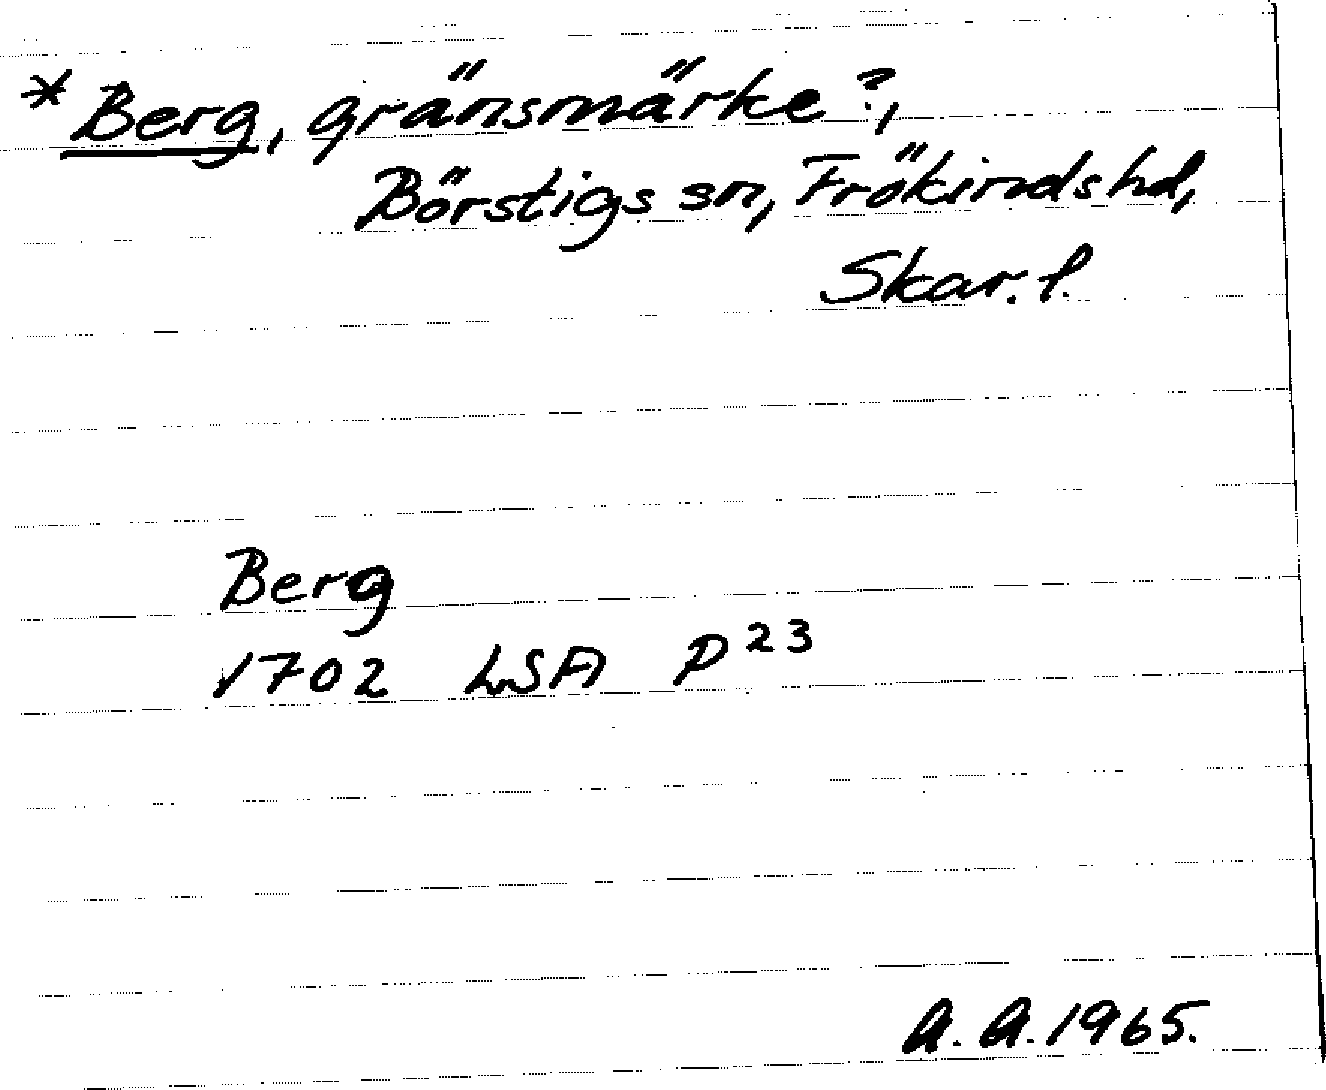 *Berg, gränsmärke?,
Börstigs sn, Frökinds hd,
Skar. l.
Berg
1702 LSA P23
A. A. 1965.